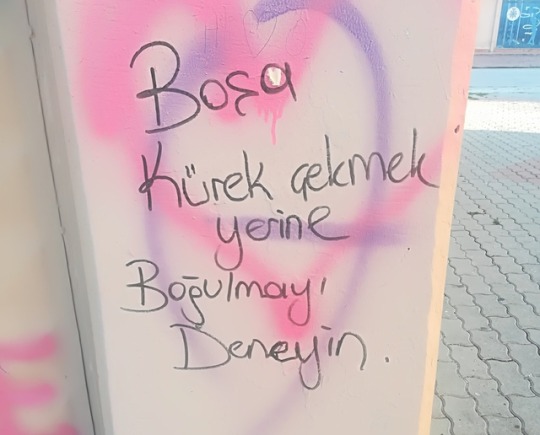 Boşa
Kürek çekmek
yerine
Boğulmayı
Deneyin.